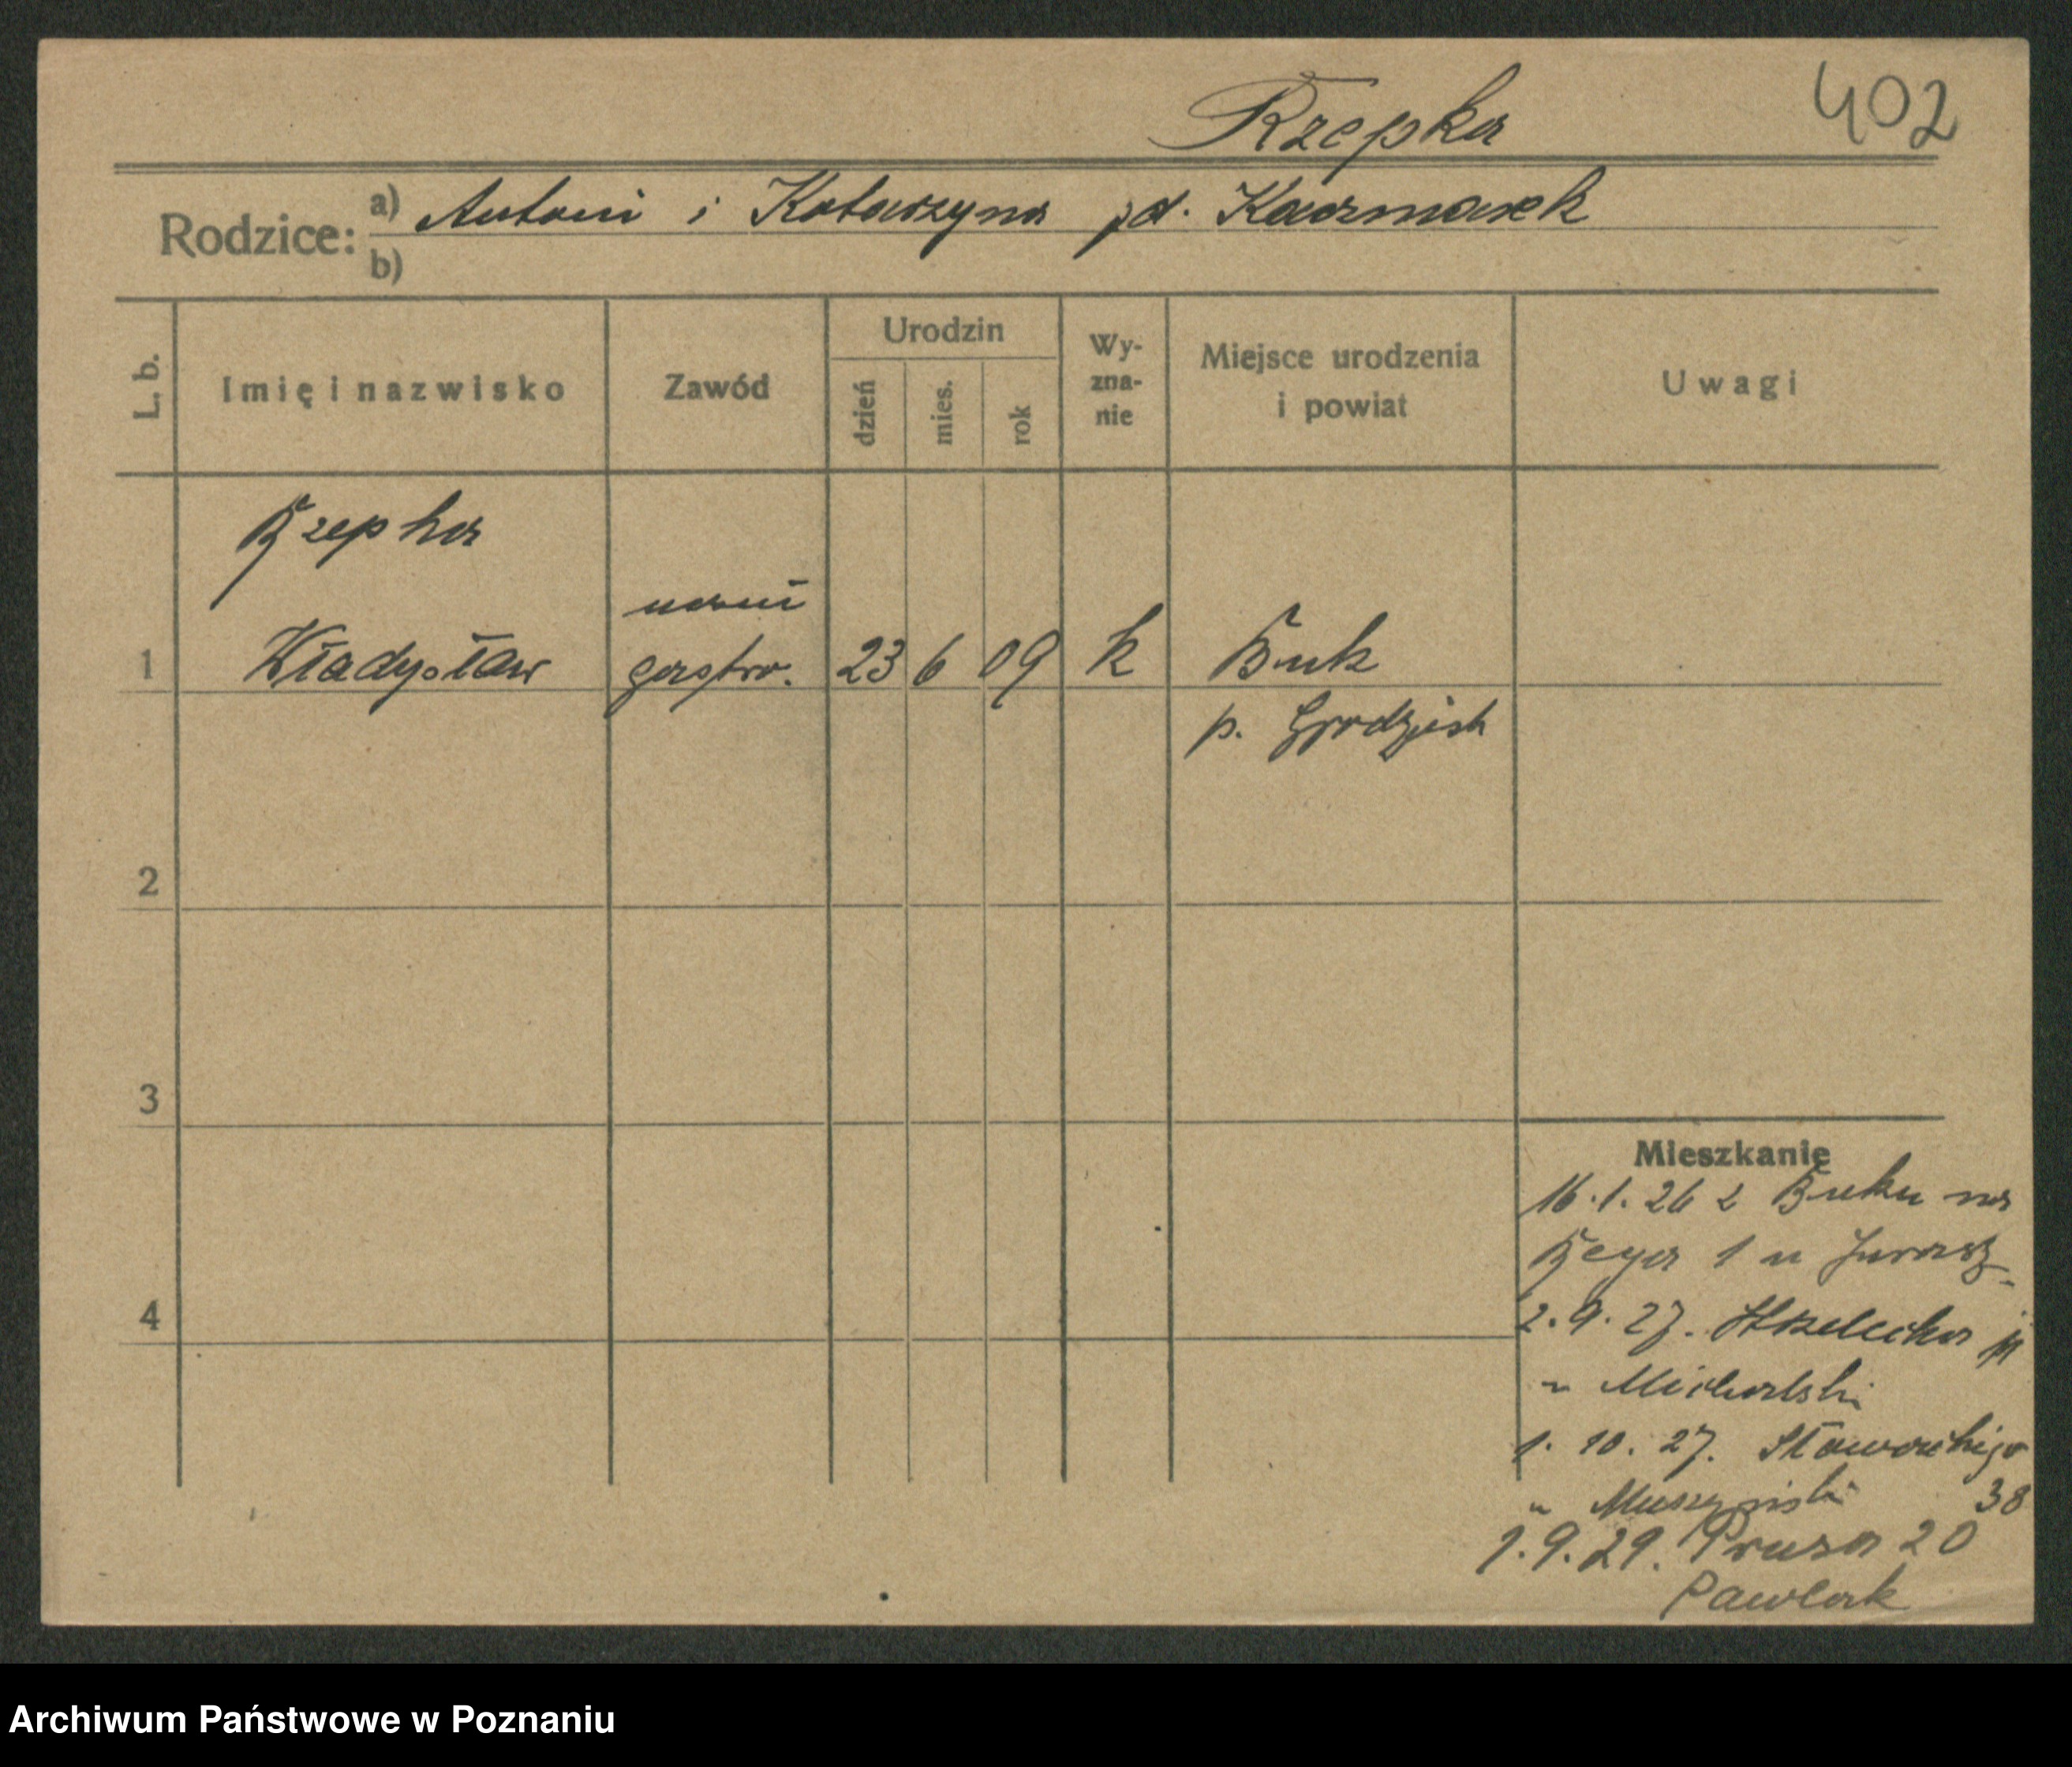 Rzepka 402
Rodzice: a) Antoni i Katarzyna zd. Kaczmarek
b)
L. b. Imię i nazwisko Zawód Urodzin dzień mies. rok Wyzna-nie Miejsce urodzenia i powiat Uwagi
Rzepka
uczeń
1 Władysław gastro. 23 6 09 k Buk
p. Grodzisk
2
3
Mieszkanie
16.1.26 z Buku na
Reya 1 u
4
2.9.27. Strzelecka
u Michalski
1.10.27. Słowackiego
u Muszyński 38
1.9.29. Prusa 20
Pawlak
Archiwum Państwowe w Poznaniu